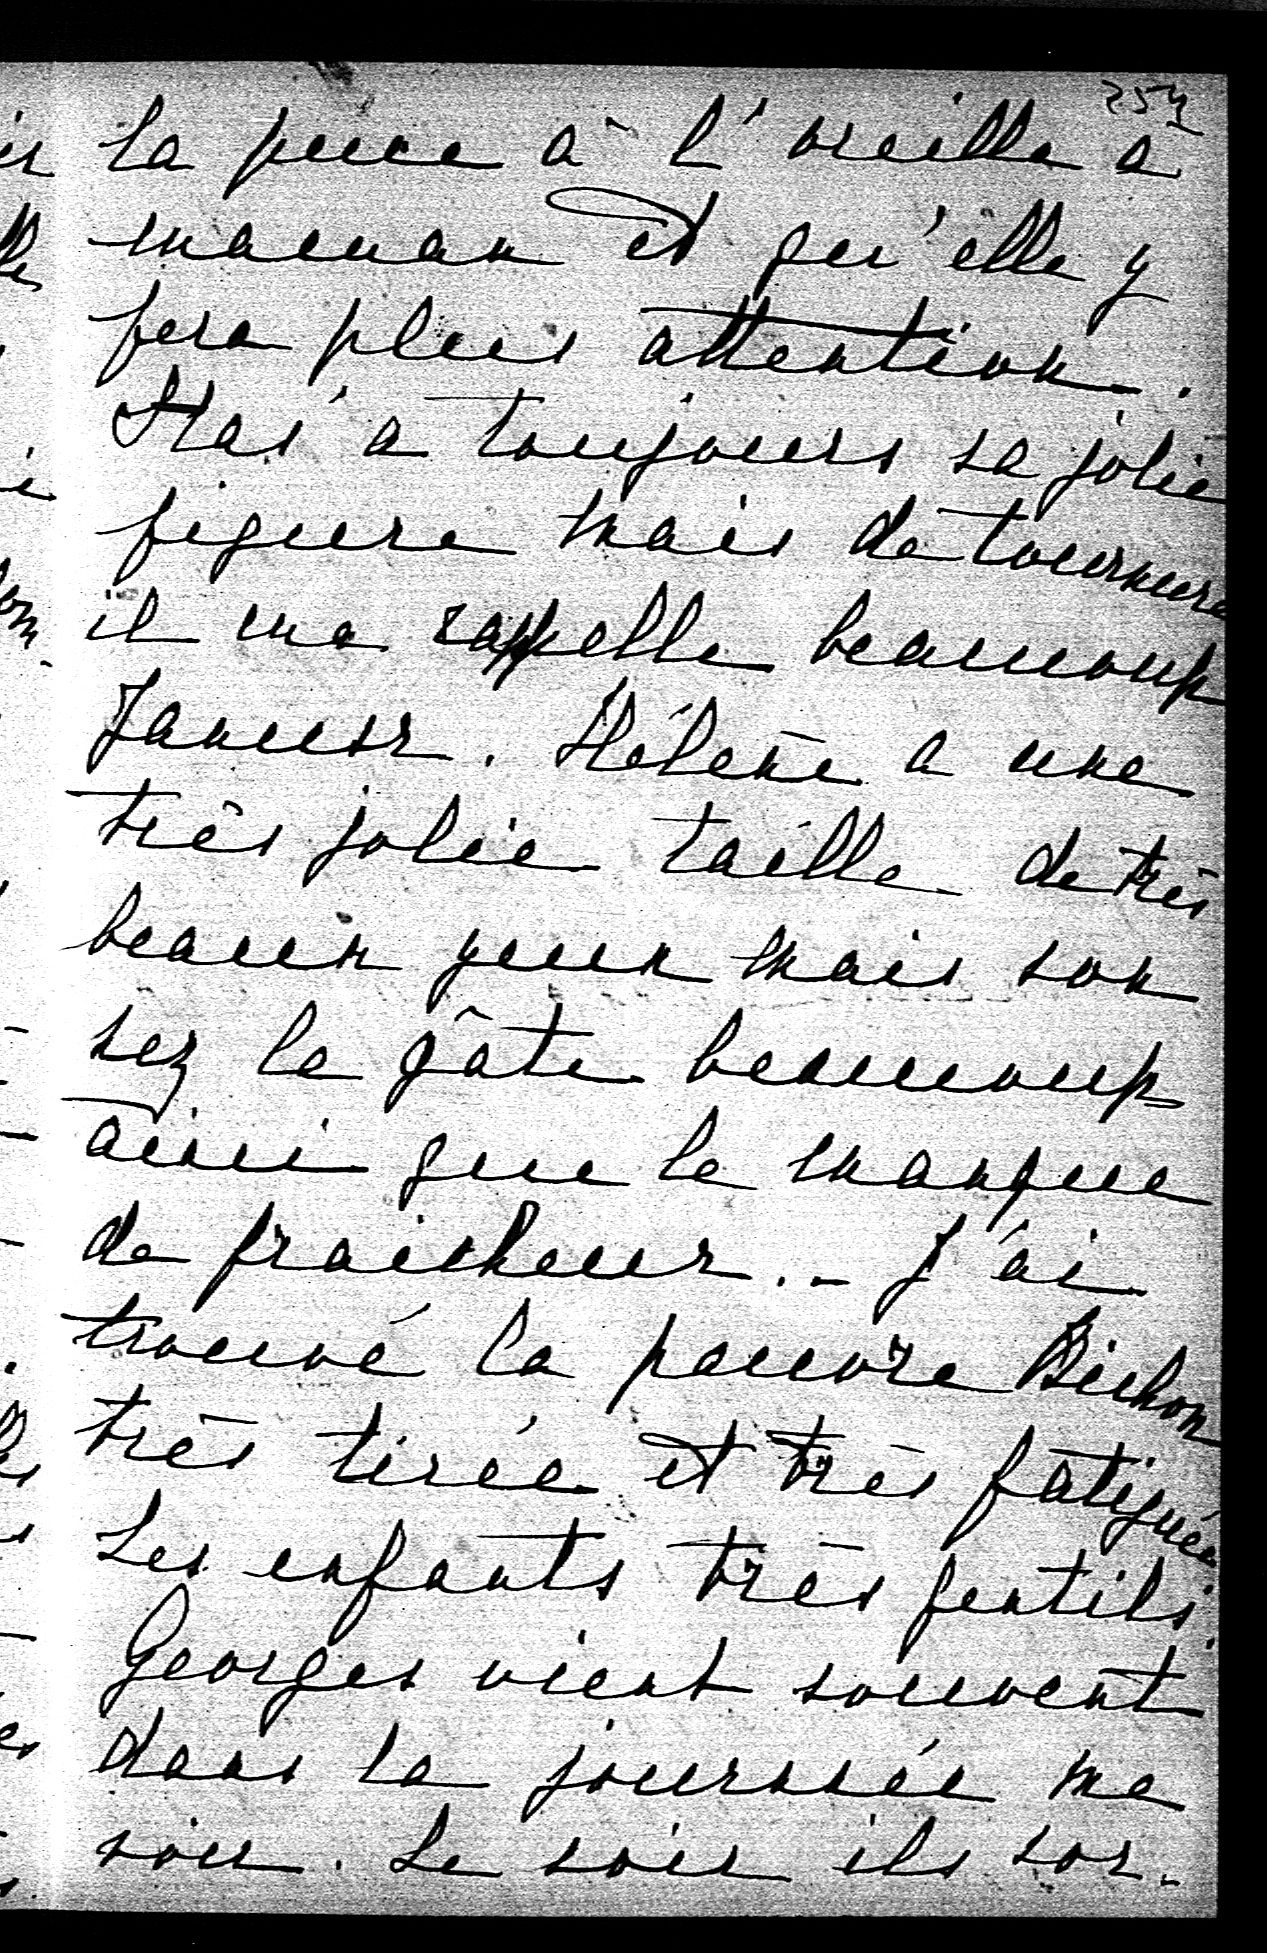 254
la puce à l'oreille à
maman et qu'elle y
fera plus attention.
Stas' a toujours sa jolie
figure mais de tournure
il me rappelle beaucoup
Hélène a une
très jolie taille de très
beaux yeux mais son
nez la gâte beaucoup
ainsi que le manque
de fraicheur. - J'ai
trouvé la pauvre Bichon
très tirée et très fatiguée
Les enfants très gentils.
Georges vient souvent
dans la journée me
voir. Le soir ils sor-